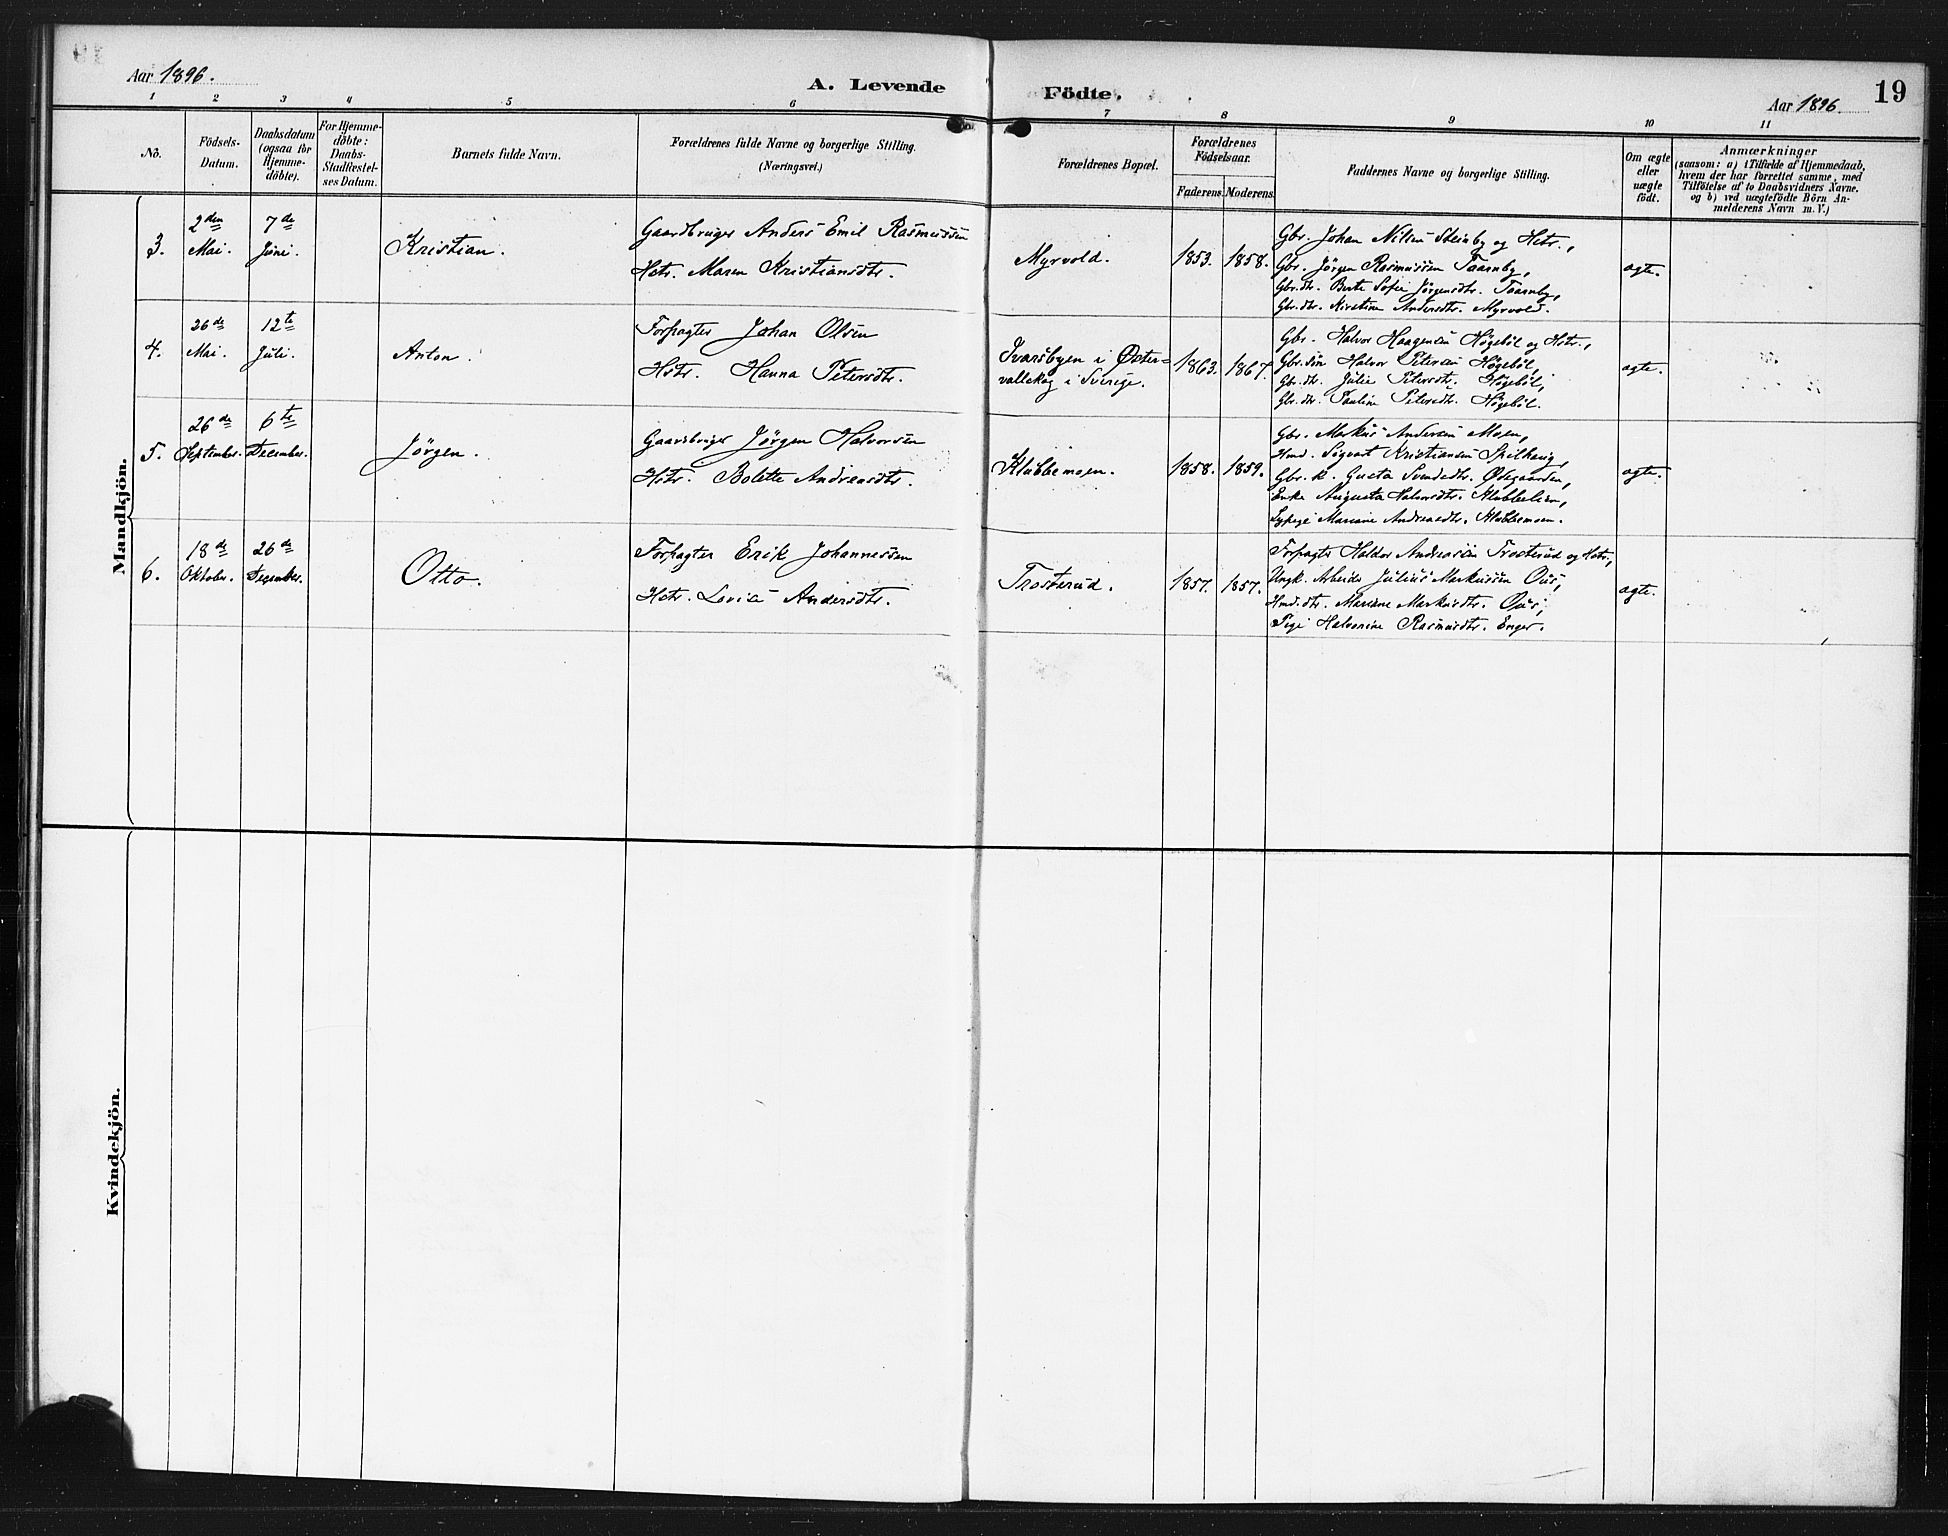 Aar 1896.
A. Levende Födte.
Aar 1896.
19
1 2 3 4 5 6 7 8 9 10 11
No.
Födsels-
Datum.
Daabsdatum
(ogsaa for
Hjemme-
döbte).
For Hjemme-
döbte:
Daabs-
Stadfæstel-
ses Datum.
Barnets fulde Navn.
Forældrenes fulde Navne og borgerlige Stilling.
(Næringsvei.)
Forældrenes Bopæl.
Forældrenes
Födselsaar.
Faderens. Moderens.
Faddernes Navne og borgerlige Stilling.
Om ægte
eller
uægte
födt.
Anmærkninger
(saasom: a) i Tilfælde af Hjemmedaab,
hvem der har forrettet samme, med
Tilföielse af to Daabsvidners Navne.
og b) ved uægtefödte Börn An-
melderens Navn m. V.)
Mandkjön.
3.
2den
Mai.
7de
Juni.
Kristian.
Gaardbruger Anders Emil Rasmussen
Hstr. Maren Kristiansdtr.
Myrvold.
1853. 1858.
Gbr. Johan Nilsen Steinby og Hstr.,
Gbr. Jörgen Rasmussen Taarnby,
Gbr.dtr. Berte Sofie Jörgensdtr. Taarnby,
Gbr.dtr. Kirstine Andersdtr. Myrvold.
ægte.
4.
26de
Mai.
12te
Juli.
Anton.
Forpagter Johan Olsen
Hstr. Hanna Petersdtr.
Ivarsbyen i Øster-
vallskog i Sverige.
1863. 1867.
Gbr. Halvor Haagensen Högebøl og Hstr.,
Gbr.sön Halvor Petersen Högebøl,
Gbr.dtr. Julie Petersdtr. Högebøl,
Gbr.dtr. Pauline Petersdtr. Högebøl.
ægte.
5.
26de
September.
6te
December.
Jörgen.
Gaardbruger Jörgen Halvorsen
Hstr. Bolette Andreasdtr.
Klubbemoen.
1858. 1859.
Gbr. Markus Andersen Moen,
Hmd. Sigvart Kristiansen Spilhaug,
Gbr. k. Gusta Svendsdtr. Ødegaarden,
Enke Augusta Halvorsdtr. Klubbelien,
Sypige Mariane Andreasdtr. Klubbemoen.
ægte.
6.
18de
Oktober.
26de
December.
Otto.
Forpagter Erik Johannessen
Hstr. Lovisa Andersdtr.
Trosterud.
1857. 1857.
Forpagter Haldor Andreassen Trosterud og Hstr.,
Ungk. Arbeider Julius Markussen Ous,
Hmd.dtr. Mariane Markusdtr. Ous,
Pige Halvorine Rasmusdtr. Enger.
ægte.
Kvindekjön.